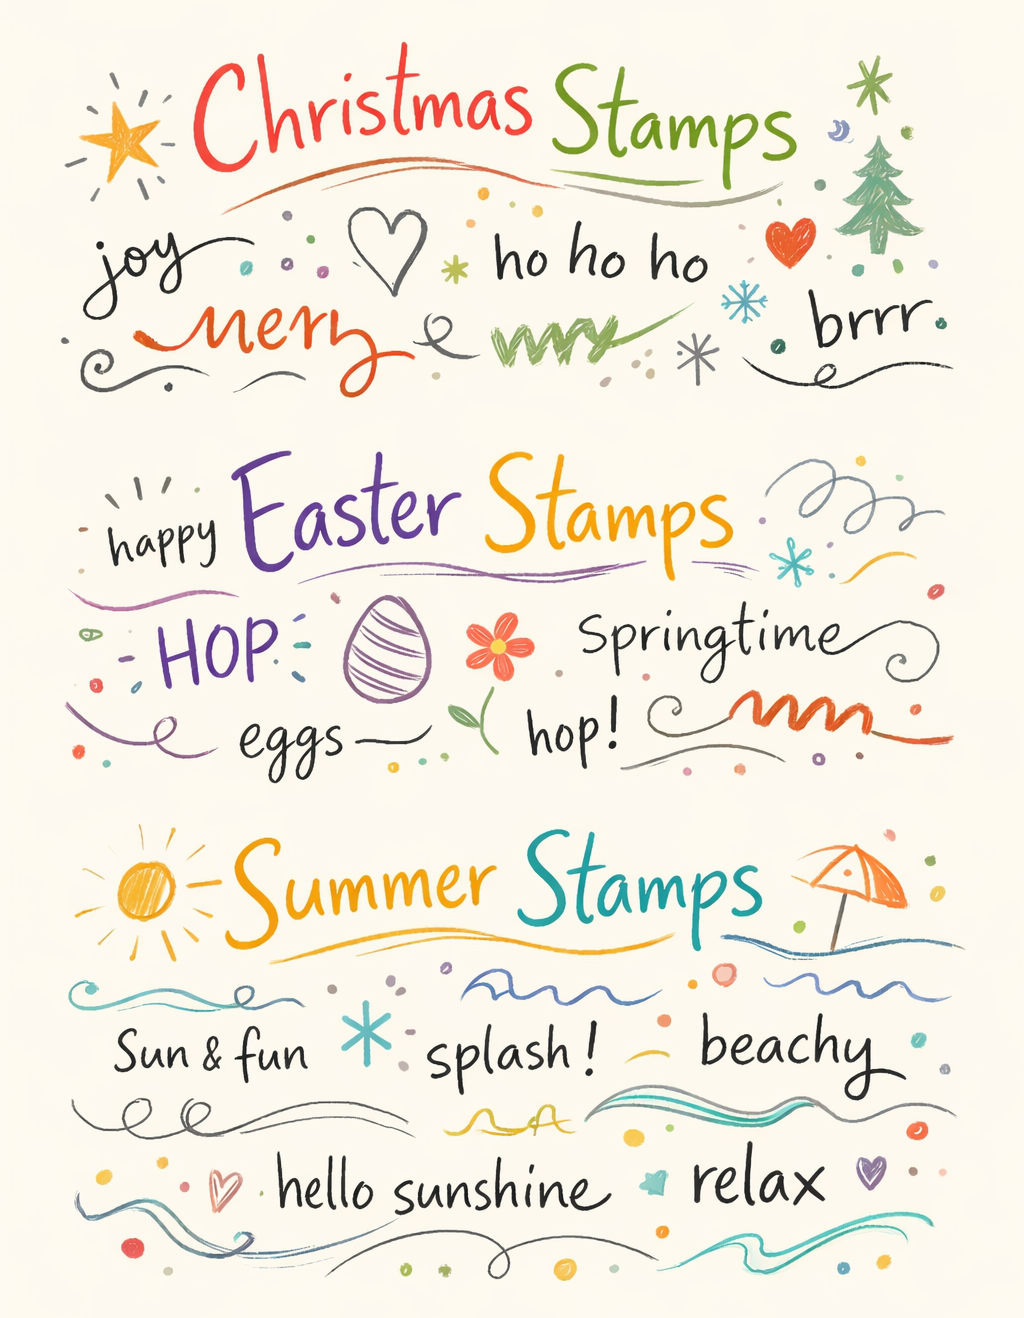 Christmas Stamps
joy
ho ho ho
brrr
happy
Easter Stamps
HOP
Springtime
eggs
hop!
Summer Stamps
Sun & fun
splash!
beachy
hello sunshine
relax